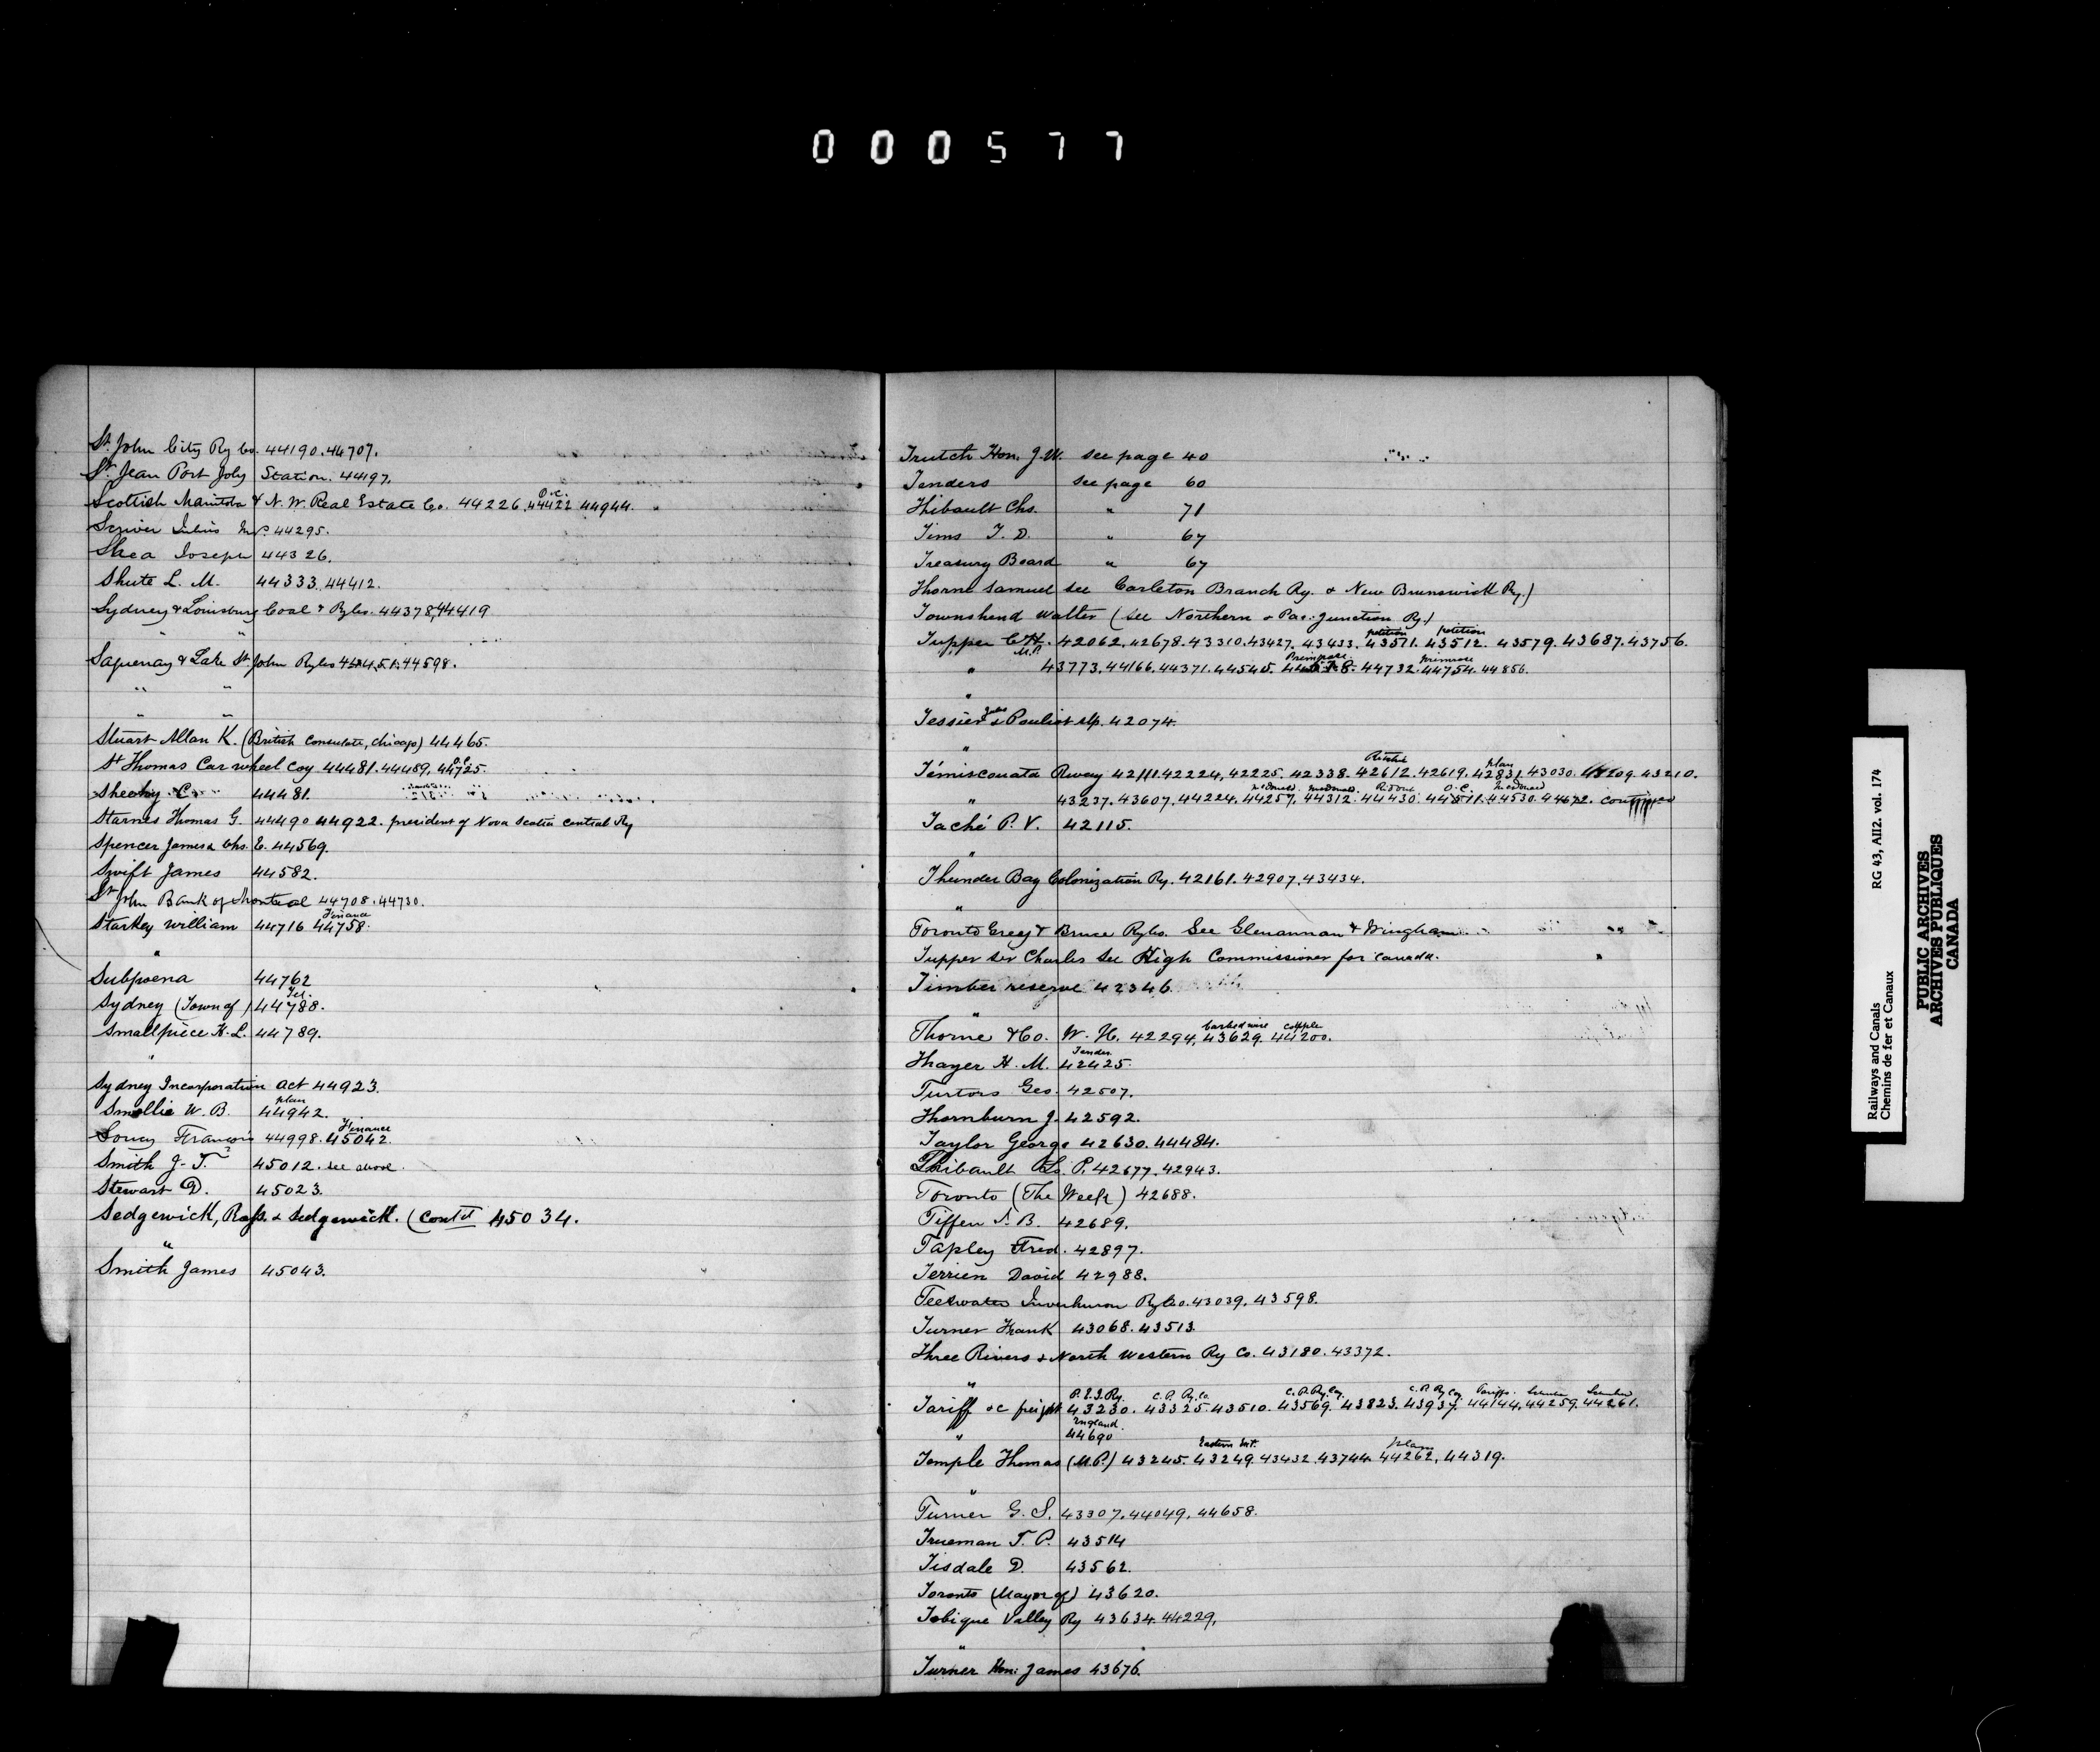 000577
St. John City Ry Co. 44190. 44707.
St. Jean Port Joly Station. 44197.
O.C.
Scottish Manitoba & N.W. Real Estate Co. 44226. 44422 44944.
Scriver Julius M.P. 44295.
Shea Joseph 44326.
Shute L. M. 44333. 44412.
Sydney & Louisburg Coal & Ry Co. 44378, 44419
" "
Saguenay & Lake St. John Ry Co 44451. 44598.
" "
" "
Stuart Allan K. (British Consulate, Chicago) 44465.
O.C.
St Thomas Car wheel Coy 44481. 44489. 44725.
Sheehy C. 44481.
Starnes Thomas G. 44490 44922. president of Nova Scotia Central Ry
Spencer James & Chs. E. 44569.
Swift James 44582.
St John Bank of Montreal 44708. 44730.
Finance
Starkey William 44716 44758.
"
Subpoena 44762
Tel.
Sydney (Town of) 44788.
Smallpiece H. L. 44789.
"
Sydney Incorporation Act 44923.
plan
Smellie W. B. 44942.
Finance
Soucy Francois 44998. 45042.
Smith J. T. 45012. see above.
Stewart D. 45023.
Sedgewick, Ross. & Sedgewick. (Cont'd 45034.
"
Smith James 45043.
Trutch Hon. J.W. see page 40
Tenders see page 60
Thibault Chs. " 71
Tims T. D. " 67
Treasury Board " 67
Thorne Samuel see Carleton Branch Ry. & New Brunswick Ry.)
Townshend Walter (see Northern & Pac. Junction Ry.)
petition petition
Tupper C.H. M.P. 42062. 42678. 43310. 43427. 43433. 43511. 43512. 43579. 43687. 43756.
Primrose. primrose
" 43773. 44166. 44371. 44545. 44618. 44732. 44754. 44856.
"
Tessier Jules & Pouliot Mp. 42074.
"
Ritchie plan
Témiscouata Rway 42111. 42224, 42225. 42338. 42612. 42619. 42831. 43030. 43209. 43210.
McDonald. McDonald. Ridout O.C. McDonald
" 43237. 43607. 44224. 44257. 44312. 44430. 44511. 44530. 44672. continued
Taché P. V. 42115.
"
Thunder Bay Colonization Ry. 42161. 42907. 43434.
"
Toronto Grey & Bruce Ry Co. See Glenannan & Wingham
Tupper Sir Charles See High Commissioner for Canada.
Timber reserve 42346
"
barbed wire copple
Thorne & Co. W. H. 42294, 43629. 44200.
Tender.
Thayer H. M. 42425.
Turtors Geo. 42507.
Thornburn J. 42592.
Taylor George 42630. 44484.
Thibault Ls. P. 42677. 42943.
Toronto (The Week) 42688.
Tiffen S. B. 42689.
Tapley Fred. 42897.
Terrien David 42988.
Teeswater Inverhuron Ry Co. 43039. 43598.
Turner Frank 43068. 43513.
Three Rivers & North Western Ry Co. 43180. 43372.
"
P.E.I. Ry. C.P. Ry. Co. C.P. Ry. Coy. C.P. Ry Coy Tariffs. Lumber Lumber
Tariff &c freight 43230. 43325. 43510. 43569. 43823. 43937. 44144. 44259. 44261.
England
" 44690
Eastern Ext. plan
Temple Thomas (M.P.) 43245. 43249. 43432. 43744. 44262, 44319.
"
Turner G. S. 43307. 44049. 44658.
Trueman T. P. 43514
Tisdale D. 43562.
Toronto (Mayor of) 43620.
Tobique Valley Ry 43634. 44229.
"
Turner Hon. James 43676.
Railways and Canals RG 43, AII2. vol. 174
Chemins de fer et Canaux
PUBLIC ARCHIVES
ARCHIVES PUBLIQUES
CANADA